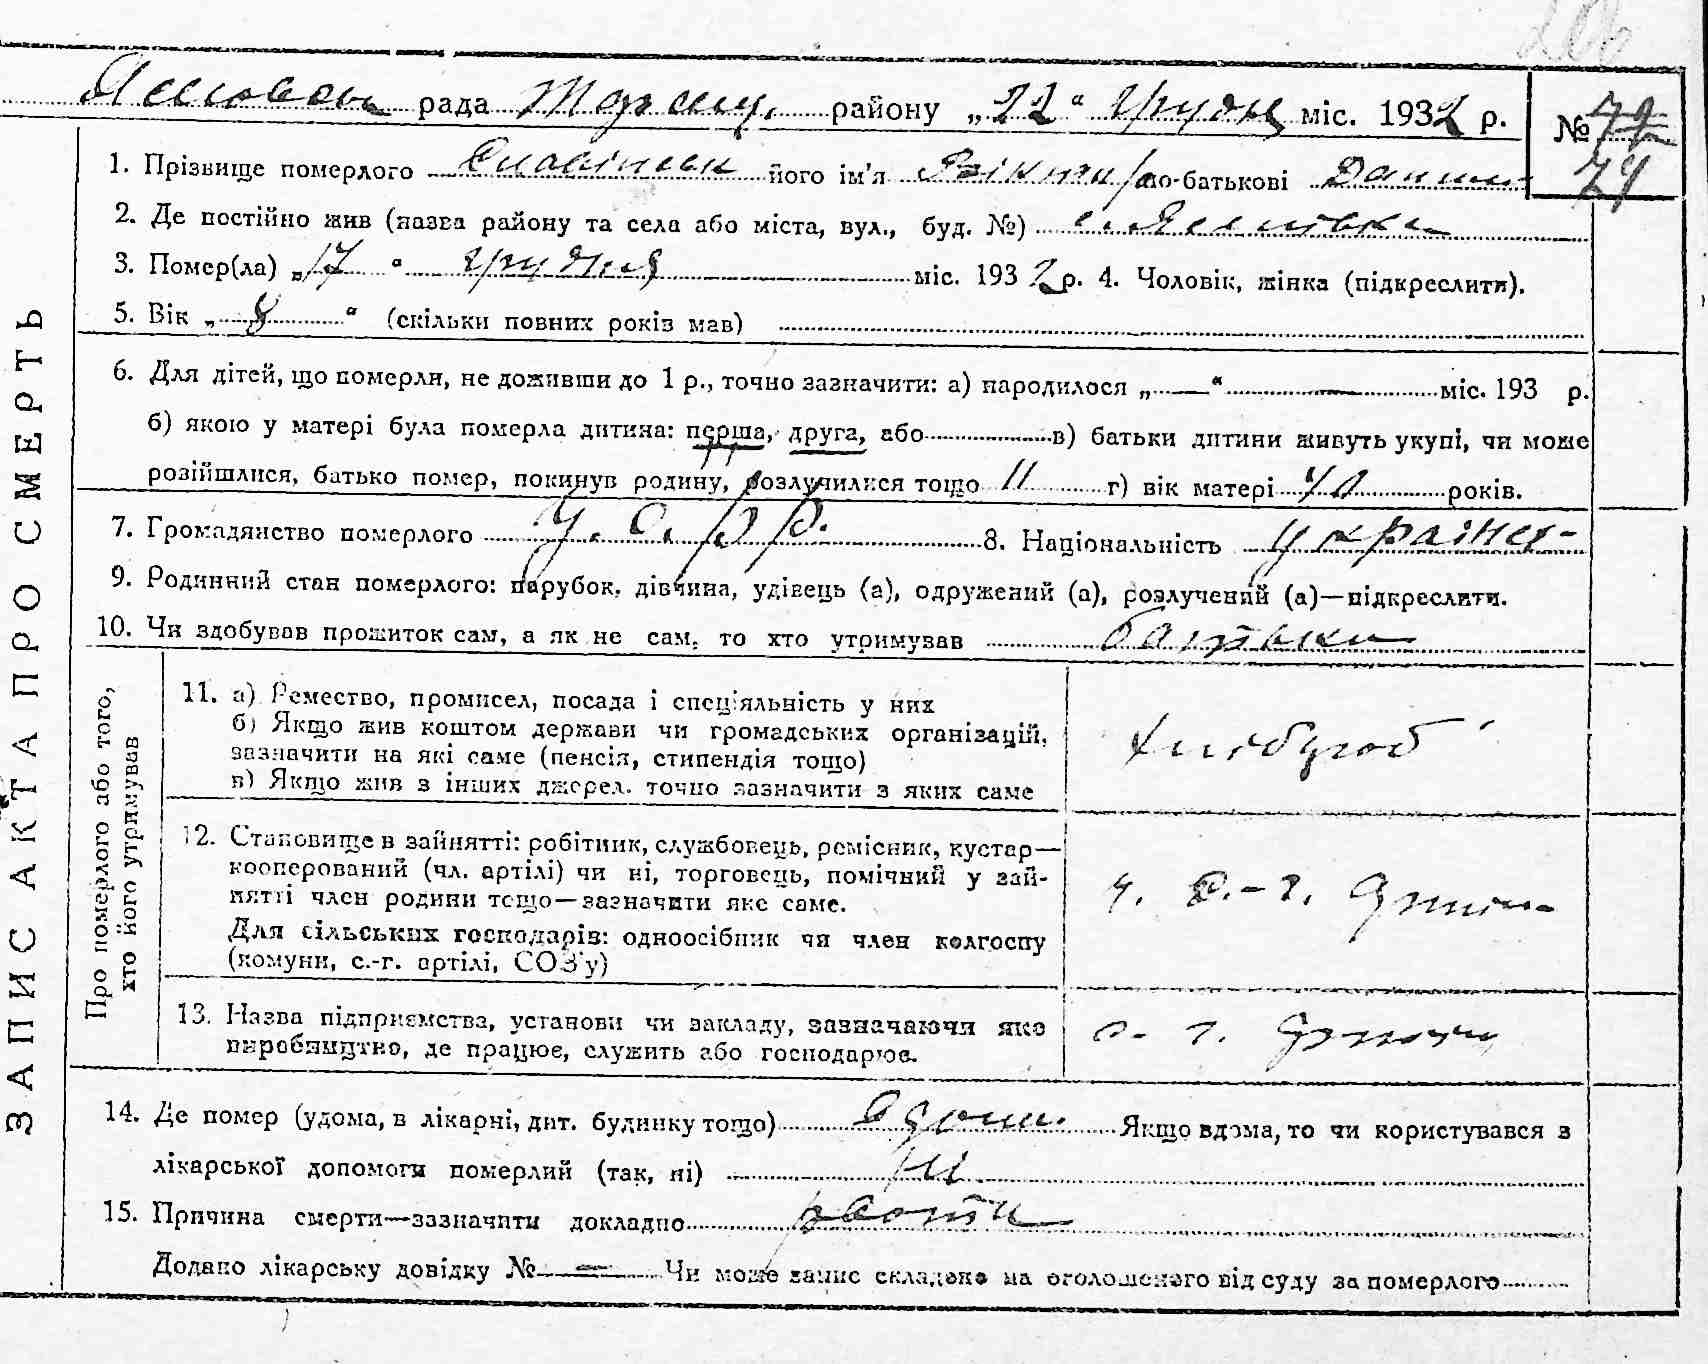 рада района „22“ Грудня міс. 1932 р. № 74
1. Прізвище померлого його ім'я Віктор по-батькові
2. Де постійно жив (назва району та села або міста, вул., буд. №)
3. Помер(ла) „17“ грудня міс. 1932 р. 4. Чоловік, жінка (підкреслити).
5. Вік „8“ (скільки повних років мав)
6. Для дітей, що померли, не доживши до 1 р., точно зазначити: а) народилося „—“ — міс. 193 р.
б) якою у матері була померла дитина: перша, друга, або в) батьки дитини живуть укупі, чи може
розійшлися, батько помер, покинув родину, розлучилися тощо 11 г) вік матері 40 років.
7. Громадянство померлого У.С.Р.Р. 8. Національність україн-
9. Родинний стан померлого: парубок, дівчина, удівець (а), одружений (а), розлучений (а)—підкреслити.
10. Чи здобував прожиток сам, а як не сам, то хто утримував батьки
ЗАПИС АКТА ПРО СМЕРТЬ
Про померлого або того,
хто його утримував
11. а) Ремество, промисел, посада і спеціяльність у них
б) Якщо жив коштом держави чи громадських організацій,
зазначити на які саме (пенсія, стипендія тощо)
в) Якщо жив з інших джерел, точно зазначити з яких саме
Хлібороб
12. Становище в зайнятті: робітник, службовець, ремісник, кустар—
кооперований (чл. артілі) чи ні, торговець, помічний у зай-
нятті член родини тощо—зазначити яке саме.
Для сільських господарів: одноосібник чи член колгоспу
(комуни, с.-г. артілі, СОЗ'у)
ч. с.-г.
13. Назва підприємства, установи чи закладу, зазначаючи яке
виробництво, де працює, служить або господарює.
с. г.
14. Де помер (удома, в лікарні, дит. будинку тощо) вдома. Якщо вдома, то чи користувався з
лікарської допомоги померлий (так, ні) ні
15. Причина смерти—зазначити докладно рвоти
Додано лікарську довідку № — Чи може запис складено на оголошеного від суду за померлого